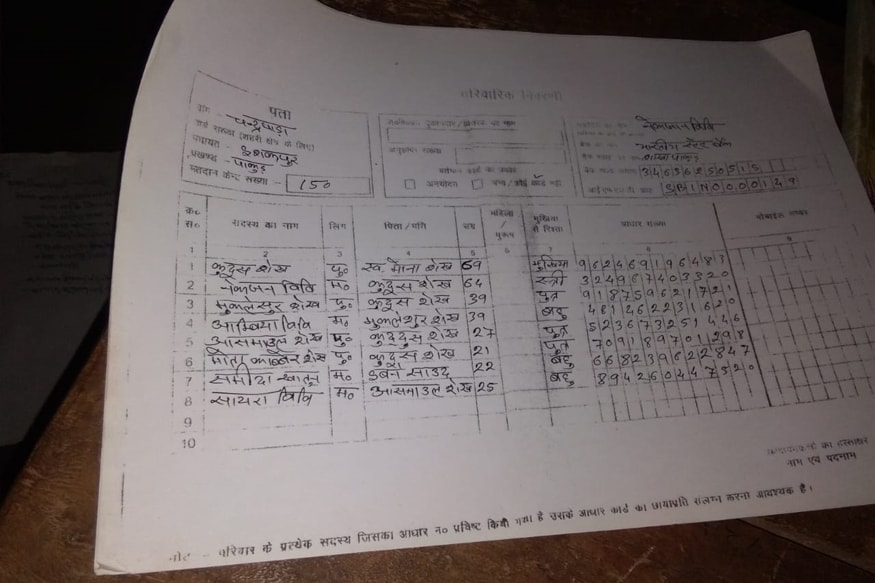 पारिवारिक विवरणी
पता
ग्राम -
वार्ड संख्या (शहरी क्षेत्र के लिए)
पंचायत - इशाकपुर
प्रखण्ड - पाकुड़
मतदान केन्द्र संख्या - 150
अनुज्ञप्ति संख्या
वर्तमान कार्ड का प्रकार
अन्त्योदय
34656250515
SBIN0000149
क्र० स० सदस्य का नाम लिंग पिता/पति उम्र महिला / पुरूष मुखिया से रिश्ता आधार संख्या मोबाईल संख्या
1 2 3 4 5 6 7 8 9
1 कुद्दुस शेख पु० स्व मोना शेख 69 मुखिया 962469196483
2 नेकजन विवि म० कुद्दुस शेख 64 स्त्री 324967407320
3 मुकलेसुर शेख पु० कुद्दुस शेख 39 पुत्र 918759621721
4 आम्बिया विवि म० मुकलेशुर शेख 39 बहु 481462231620
5 आसमाउल शेख पु० कुद्दुस शेख 27 पुत्र 523673251446
6 शेख पु० कुद्दुस शेख 21 पुत्र 709189701298
7 समीदा खातुन म० 22 बहु 668239622847
8 सायरा विवि म० आसमाउल शेख 25 बहु 894260447520
9
10
का हस्ताक्षर
नाम एवं पदनाम
नोट - परिवार के प्रत्येक सदस्य जिसका आधार न० प्रविष्ट किया गया है उसके आधार कार्ड का छायाप्रति संलग्न करना आवश्यक है।